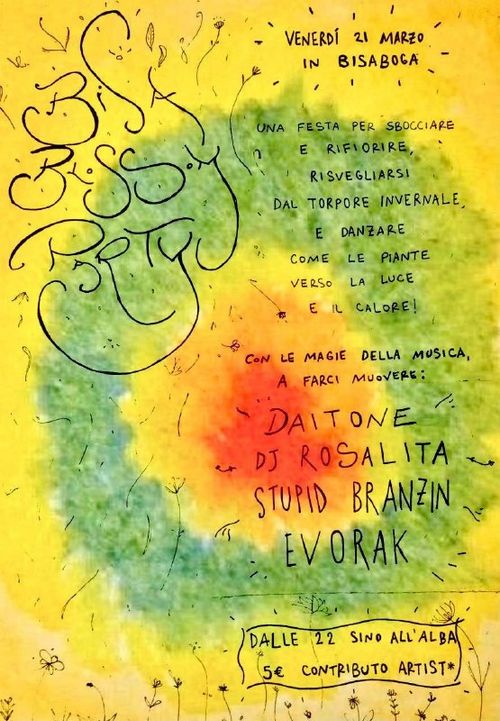 VENERDÍ 21 MARZO
IN BISABOGA
BISA
BLOSSOM
PARTY
UNA FESTA PER SBOCCIARE
E RIFIORIRE,
RISVEGLIARSI
DAL TORPORE INVERNALE,
E DANZARE
COME LE PIANTE
VERSO LA LUCE
E IL CALORE!
CON LE MAGIE DELLA MUSICA,
A FARCI MUOVERE:
DAITONE
DJ ROSALITA
STUPID BRANZIN
EVORAK
DALLE 22 SINO ALL'ALBA
5€ CONTRIBUTO ARTIST*